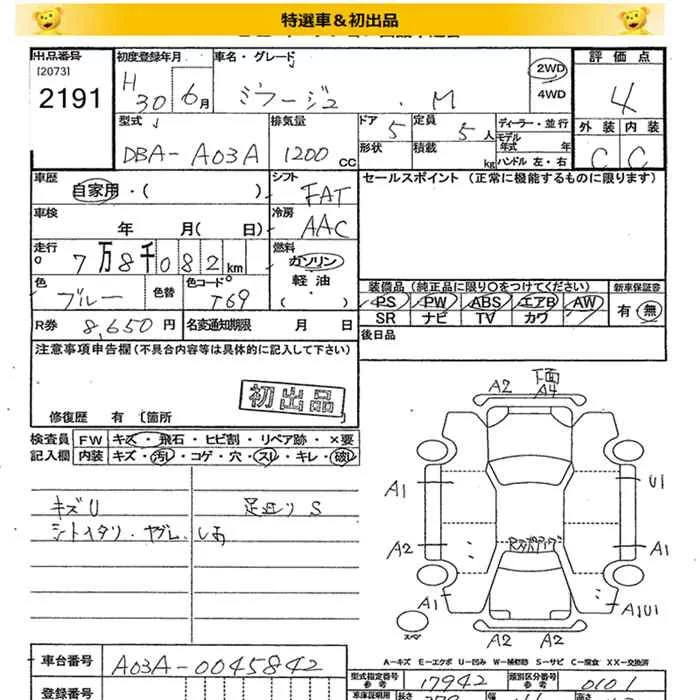 特選車&初出品
出品番号
[2073]
2191
初度登録年月
H 30 6月
車名・グレード
ミラージュ . M
2WD
4WD
評価点
4
外装 内装
C C
型式
DBA-A03A
排気量
1200 cc
ドア 5
定員 5人
形状
積載 kg
ディーラー・並行
モデル年式 年
ハンドル 左・右
車歴
自家用・( )
シフト
FAT
セールスポイント (正常に機能するものに限ります)
車検
年 月( 日)
冷房
AAC
走行
7万8千082km
燃料
ガソリン
軽油
( )
色
ブルー
色替
色コードNo
T69
装備品 (純正品に限り○をつけてください)
PS PW ABS エアB AW
SR ナビ TV カワ
新車保証書
有・無
R券 8,650円
名変通知期限 月 日
後日品
注意事項申告欄(不具合内容等は具体的に記入して下さい)
初出品
修復歴 有 [箇所 ]
検査員記入欄
FW キズ・飛石・ヒビ割・リペア跡・×要
内装 キズ・汚レ・コゲ・穴・スレ・キレ・破レ
キズU
足廻りS
シートイタリ・ヤブレ・しお
下面
A2 A4
A1 U1
A2 A1
A1 A1U1
A2 A2
スペア
A-キズ E-エクボ U-凹み W-補修跡 S-サビ C-腐食 XX-交換済
車台番号
A03A-0045842
登録番号
型式指定番号
参考
17942
類別区分番号
参考
0101
車庫証明用
長さ